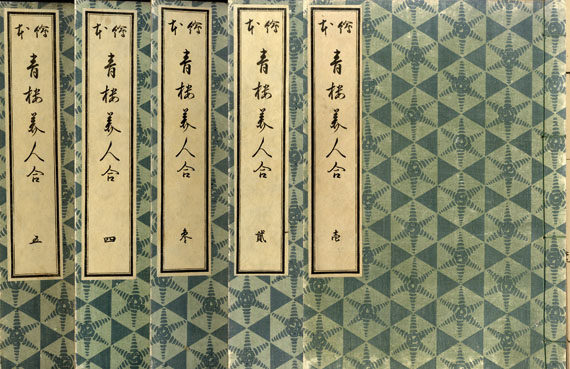 絵本
青楼美人合
壱
絵本
青楼美人合
貳
絵本
青楼美人合
参
絵本
青楼美人合
四
絵本
青楼美人合
五